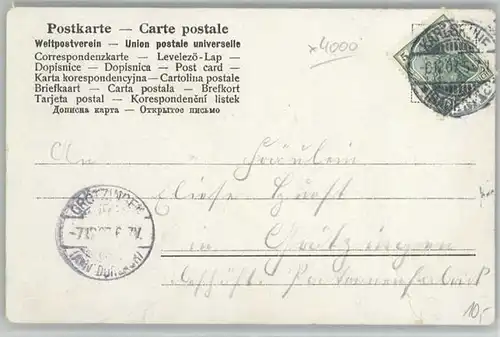 Postkarte — Carte postale
Weltpostverein — Union postale universelle
Correspondenzkarte — Levelező-Lap —
Dopisnice — Dopisnica — Post card —
Karta korespondencyjna — Cartolina postale
Briefkaart — Carta postala — Brefkort
Tarjeta postal — Korespondenční listek
Дописна карта — Открытое письмо
x4000
An Fräulein
Elise
in Grötzingen
10,-
GRÖTZINGEN
(AMT DURLACH)